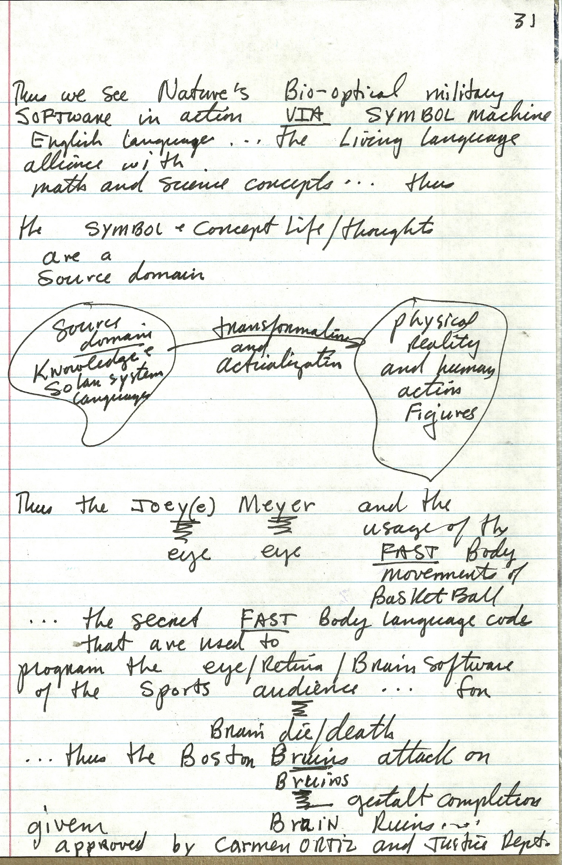 31
Thus we see Nature's Bio-optical military
SOFTWARE in action VIA SYMBOL machine
English language... the Living Language
alliance with
math and science concepts... thus
the SYMBOL & Concept Life/thoughts
are a
Source domain
Source
domain
Knowledge &
Solar system
languages
transformation
and
actualization
physical
reality
and human
action
Figures
Thus the Joey(e) Meyer and the
usage of the
eye eye FAST Body
movements of
BasketBall
... the secret FAST Body language code
that are used to
program the eye/Retina/Brain Software
of the Sports audience ... for
Brain die/death
... thus the Boston Bruins attack on
Bruins
gestalt completion
given Brain Ruins....
approved by Carmen ORTIZ and Justice Dept.